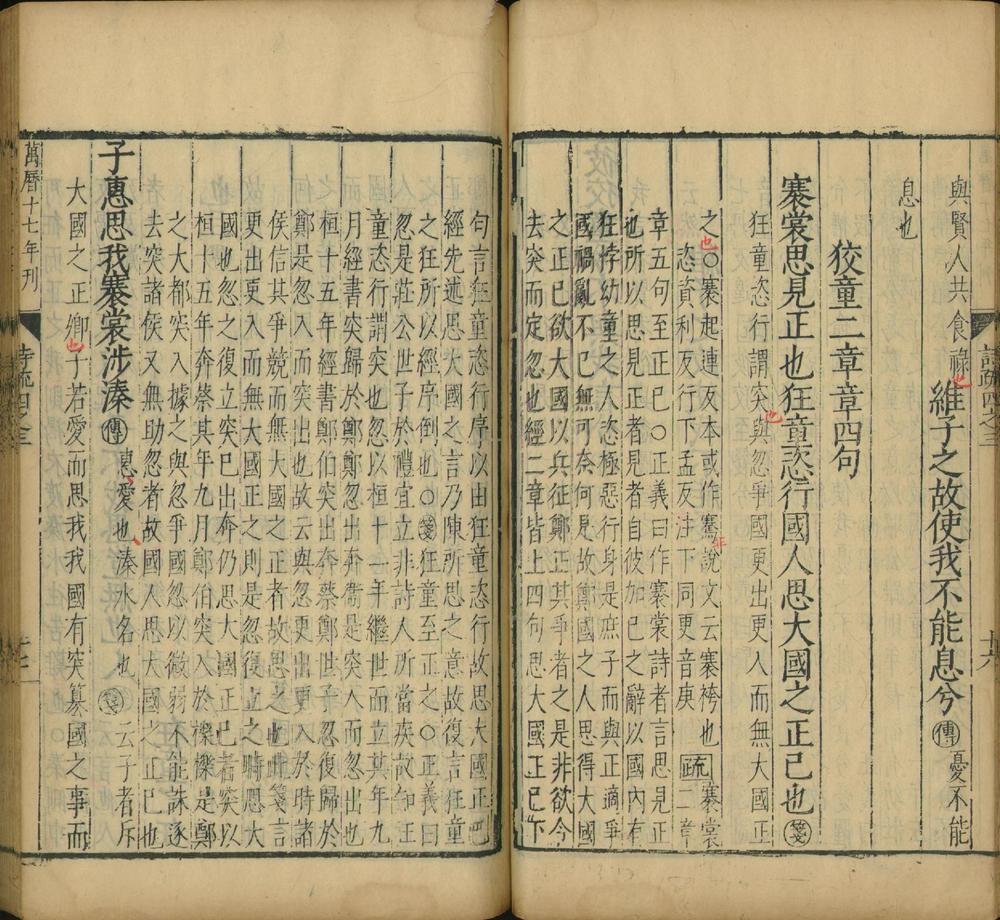 詩疏四之三
與賢人共食祿也維子之故使我不能息兮傳憂不能
息也
狡童二章章四句
褰裳思見正也狂童恣行國人思大國之正已也箋
狂童恣行謂突也與忽爭國更出更入而無大國正
之也○褰起連反本或作騫說文云褰袴也
恣資利反行下孟反注下同更音庚
疏
褰裳
二章
章五句至正已○正義曰作褰裳詩者言思見正
也所以思見正者見者自彼加己之辭以國內有
狂悖幼童之人恣極惡行身是庶子而與正適爭
國禍亂不已無可奈何是故鄭國之人思得大國
之正已欲大國以兵征鄭正其爭者之是非欲令
去突而定忽也經二章皆上四句思大國正已下
句言狂童恣行序以由狂童恣行故思大國正已
經先述思大國之言乃陳所思之意故復言狂童
之狂所以經序倒也○箋狂童至正之○正義曰
忽是莊公世子於禮宜立非詩人所當疾故知狂
童恣行謂突也忽以桓十一年繼世而立其年九
月經書突歸於鄭鄭忽出奔衞是突入而忽出也
桓十五年經書鄭伯突出奔蔡鄭世子忽復歸於
鄭是忽入而突出也故云與忽更出更入於時諸
侯信其爭競而無大國之正者故思之也此箋言
更出更入而無大國正之則是忽復立之時思大
國也忽之復立突已出奔仍思大國正已者突以
桓十五年奔蔡其年九月鄭伯突入於櫟櫟是鄭
之大都突入據之與忽爭國忽以微弱不能誅逐
去突諸侯又無助忽者故國人思大國之正已也
子惠思我褰裳涉溱傳惠愛也溱水名也箋云子者斥
大國之正卿也子若愛而思我我國有突篡國之事而
萬曆十七年刊
詩疏四之三